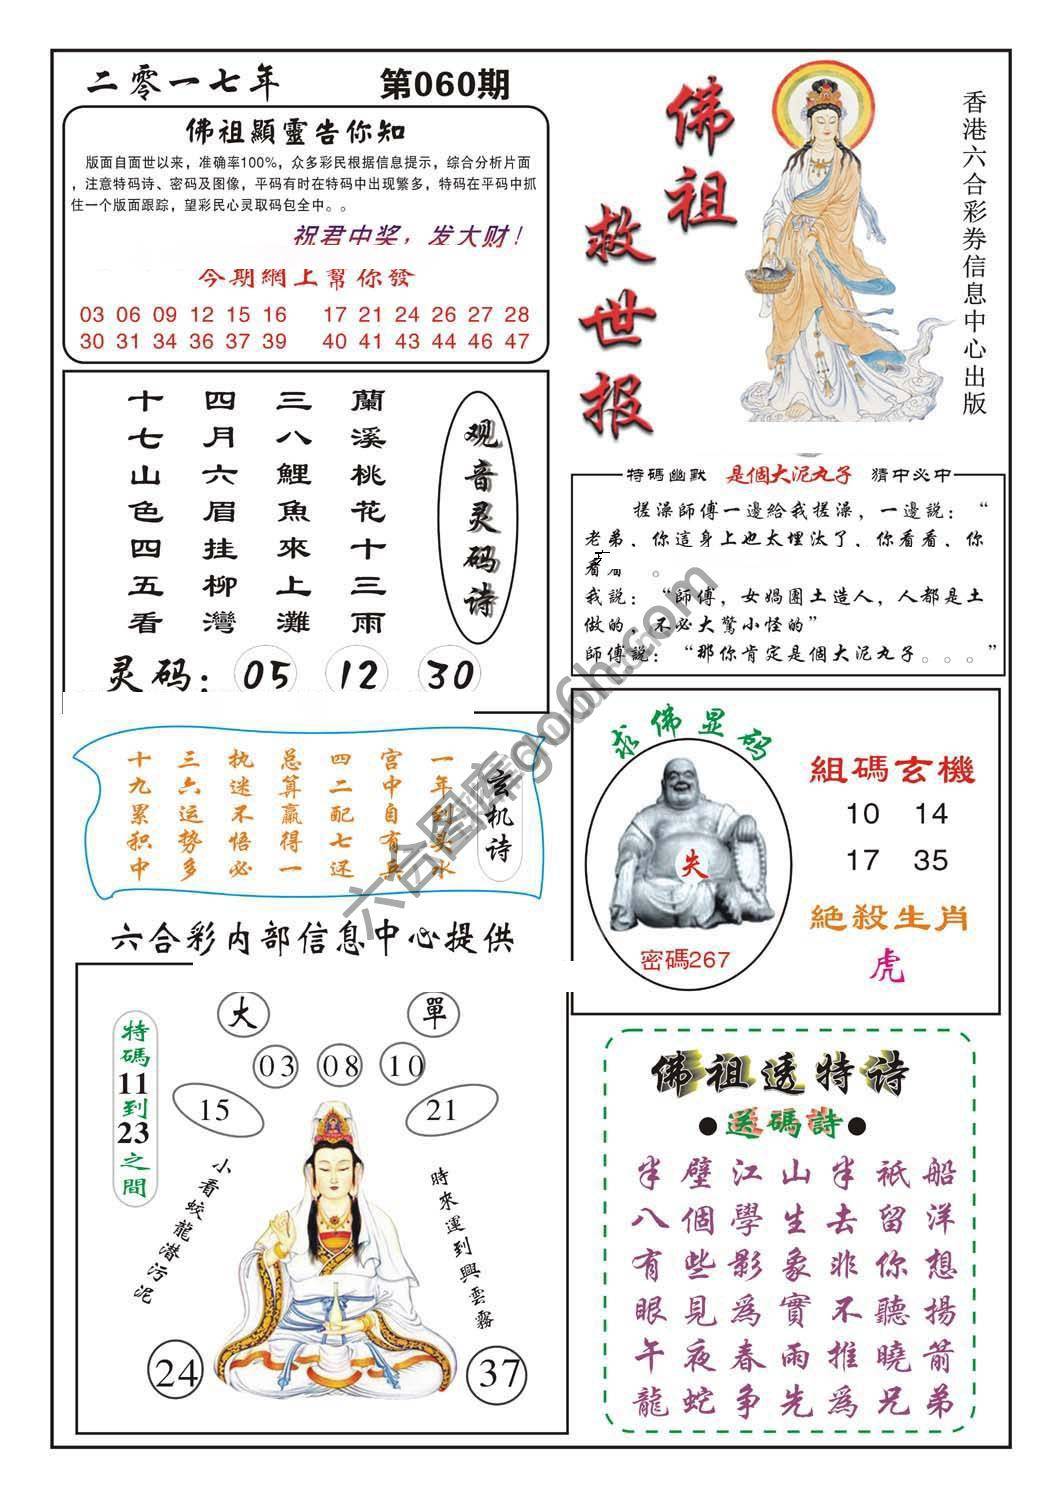 二零一七年 第060期
佛祖顯靈告你知
版面自面世以来，准确率100%，众多彩民根据信息提示，综合分析片面
，注意特码诗、密码及图像，平码有时在特码中出现繁多，特码在平码中抓
住一个版面跟踪，望彩民心灵取码包全中。。
祝君中奖，发大财！
今期網上幫你發
03 06 09 12 15 16 17 21 24 26 27 28
30 31 34 36 37 39 40 41 44 46 47
佛祖救世报
香港六合彩券信息中心出版
观音灵码诗
蘭溪桃花十三雨
三八鯉魚來上灘
四月六眉挂柳灣
十七山色四五看
灵码：05 12 30
特碼幽默 是個大泥丸子 猜中必中
搓澡師傅一邊給我搓澡，一邊説：“
老弟、你這身上也太埋汰了、你看看、你
看 。
我説：“師傅，女媧團土造人，人都是土
做的，不必大驚小怪的”
師傅説：“那你肯定是個大泥丸子。。。”
玄机诗
一年到头水
宫中自有兵
四二配七还
总算赢得一
执迷不悟必
三六运势多
十九累积中
六合彩内部信息中心提供
求佛显码
失
密碼267
組碼玄機
10 14
17 35
絶殺生肖
虎
特碼11到23之間
大 單
03 08 10
15 21
小看蛟龍潜污泥
時來運到興雲霧
24 37
佛祖透特诗
●送碼詩●
船洋想揚箭弟
祇留你聽曉兄
半去非不推爲
山生象實雨先
江學影爲春争
壁個些見夜蛇
半八有眼午龍
六合图库go6h.com